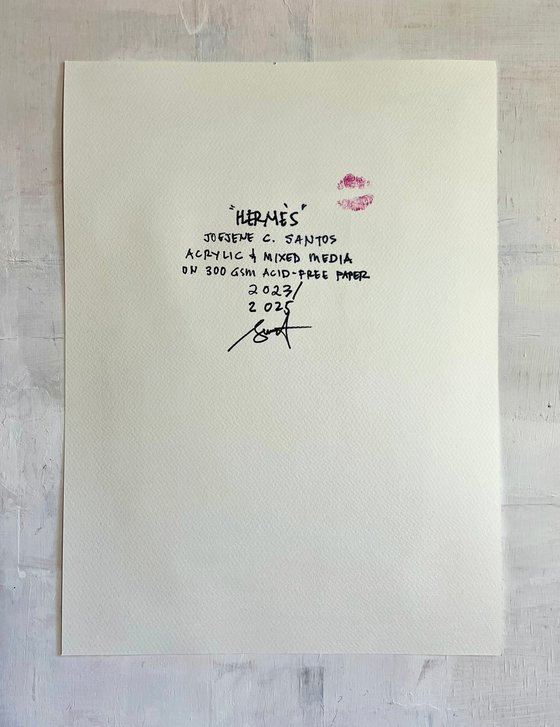 "HERMÈS"
JOEJENE C. SANTOS
ACRYLIC & MIXED MEDIA
ON 300 GSM ACID-FREE PAPER
2023/
2025